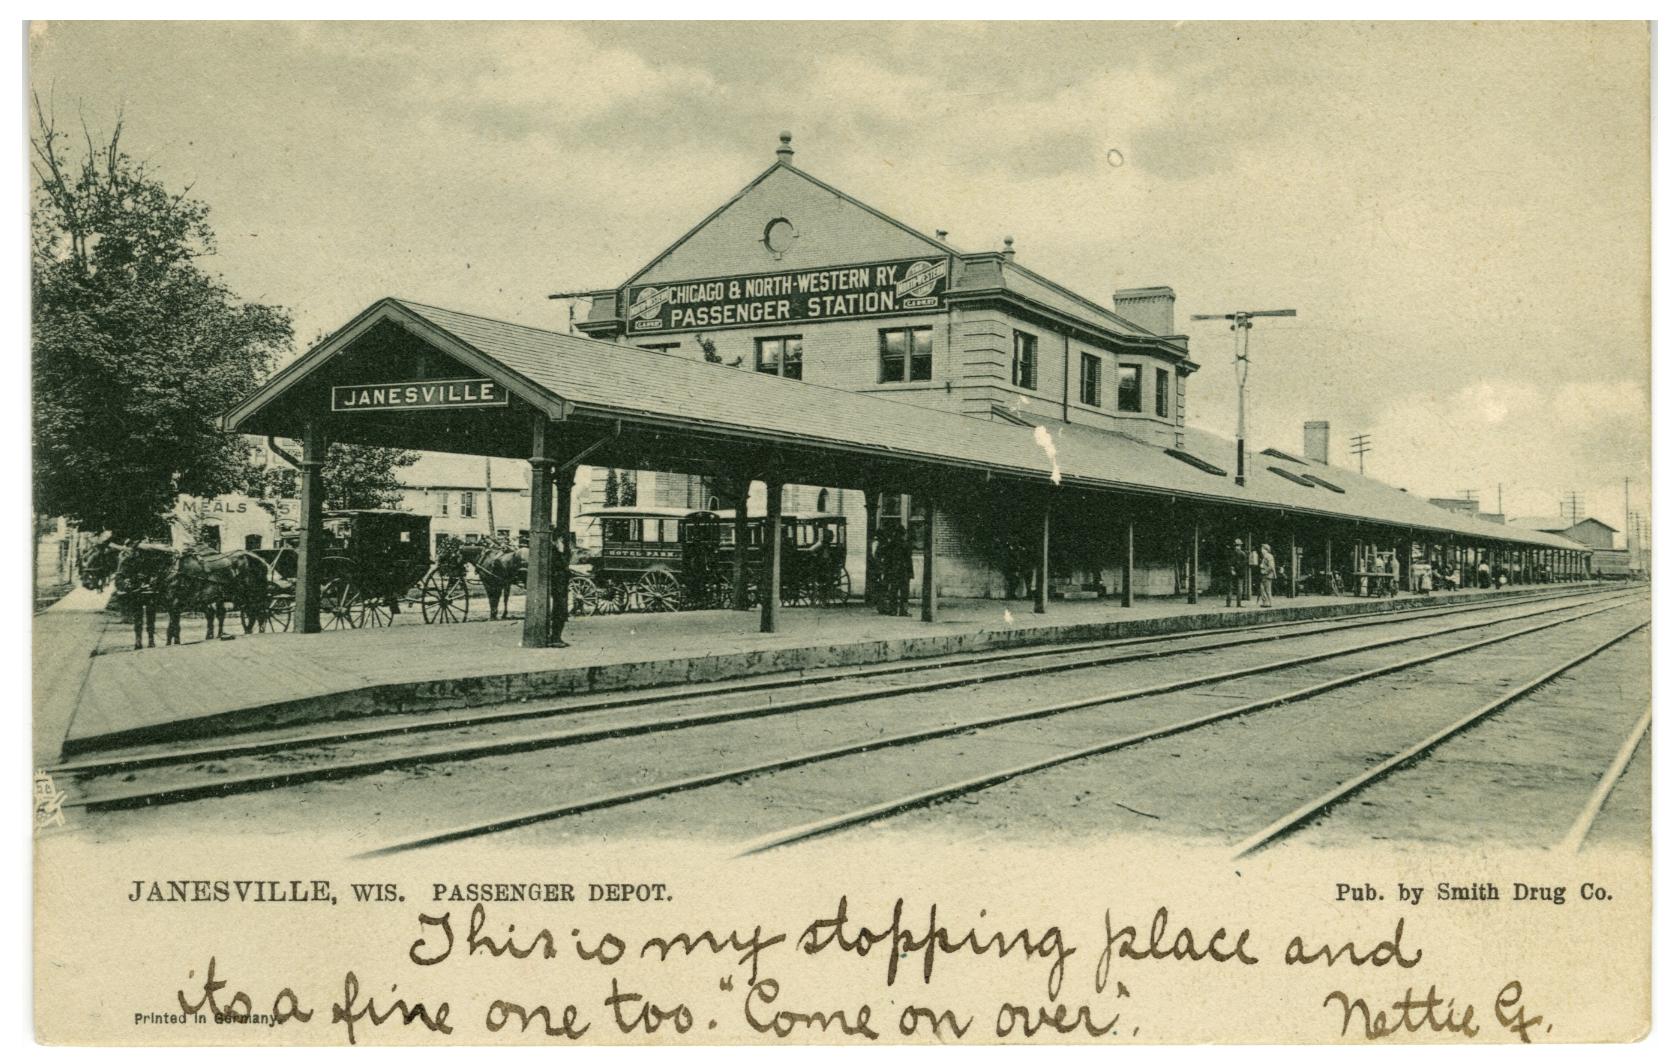 CHICAGO & NORTH-WESTERN RY
PASSENGER STATION.
NORTH-WESTERN
NORTH-WESTERN
JANESVILLE
MEALS
HOTEL PARK.
JANESVILLE, WIS. PASSENGER DEPOT.
Pub. by Smith Drug Co.
This is my stopping place and
its a fine one too. "Come on over".
Nettie G.
Printed in Germany.